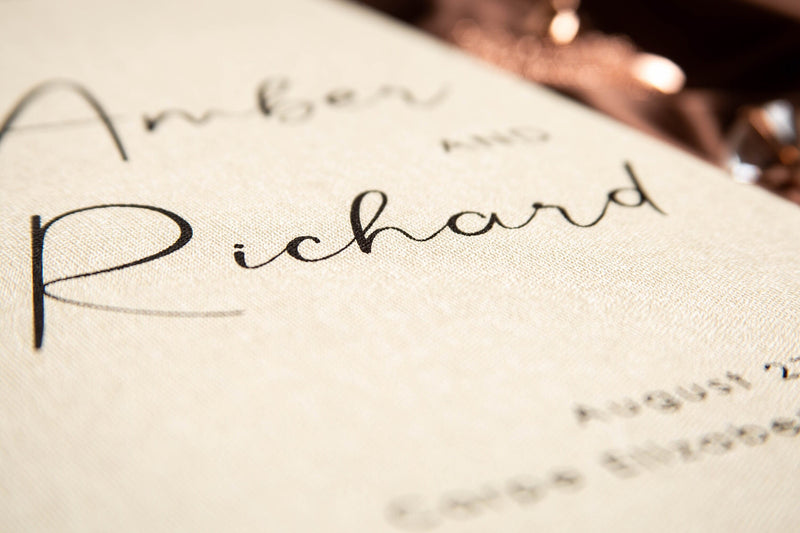 Amber
AND
Richard
August 2
Cape Elizabe